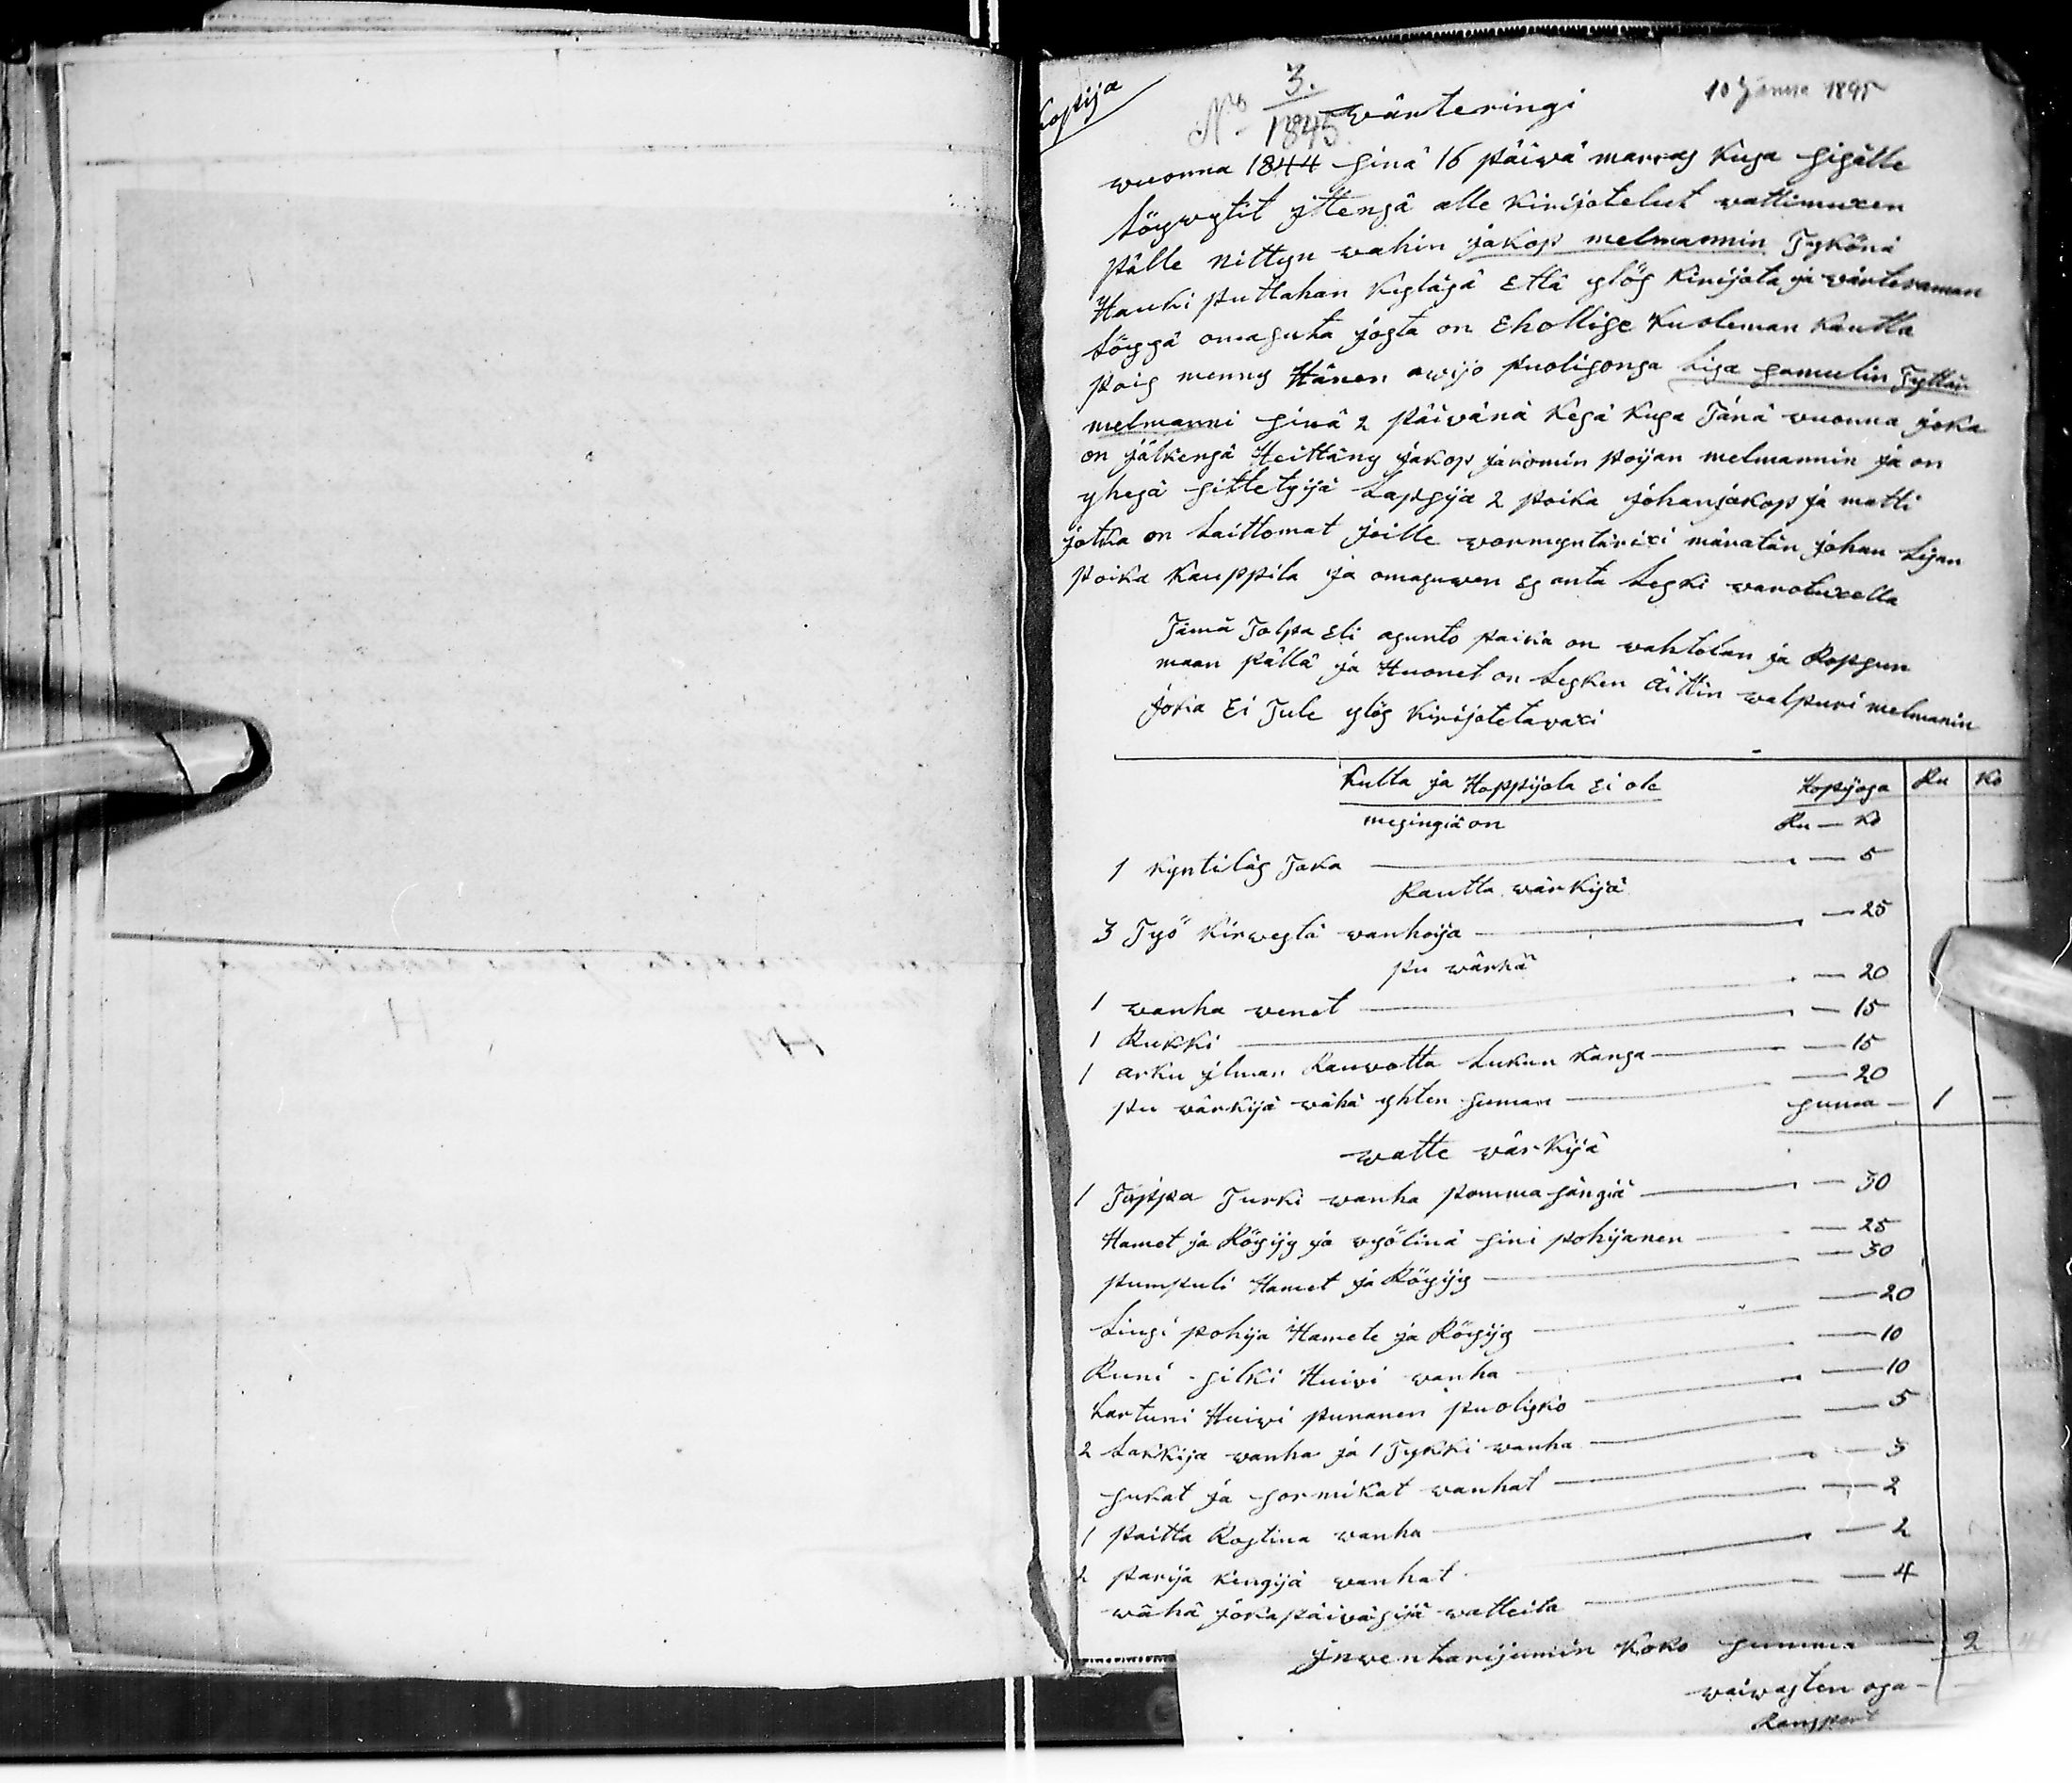 Kopija
No 3. / 1845.
10 Janua 1845
wärteringi
wuonna 1844 sinä 16 päiwä marras kusa sisälle
Löyswytit ittensä alle kirijotelut vattimuxen
pälle nittyn wahin jakop melmannin Tykönä
Hauki puttahan kyläsä Että ylös kirijota ja wärteraman
Löysä omasuta josta on Ehollise kuoleman kautta
pois menny Hänen awijo puolisonsa Lisa samulin Tyttän
melmanni sinä 2 päivänä kesä kusa Tänä vuonna joka
on jälkensä Heittäny jakop jakomin poijan melmannin ja on
yhesä sittetyijä Lapsija 2 poika johanjakop ja matti
jotka on Laittomat joille wormyntärixi märatän johan Lijan
poika kauppila ja omasuwen es anta Leski varotuxella
Tämä Tolpa Eli asunto paikka on wahtolan ja Ropsun
maan pällä ja Huonet on Lesken äittin walpuri melmanin
joka Ei Tule ylös kirijotetavaxi
Kulta ja Hoppijata Ei ole Hopijosa Ru Ko
mesingiä on Ru — Ko
1 kyntiläs Jaka — 5
Rautta wärkijä
3 Työ kirwestä wanhoija — 25
pu wärkiä
1 wanha wenet — 20
1 Rukki — 15
1 arku ilman Rauvotta Lukun kansa — 15
pu wärkijä wähä yhten suman — 20
suma — 1 —
watte wärkijä
1 Toppa Turki wanha pomma sängiä — 30
Hamet ja Röyijy ja wyölinä sini pohijanen — 25
pumpuli Hamet ja Röyijy — 30
Lingi pohija Hamete ja Röyijy — 20
Runi silki Huivi wanha — 10
kartuni Huiwi punanen puolisko — 10
2 Lakkija wanha ja 1 Tykki wanha — 5
sukat ja sormikat wanhat — 3
1 paitta Rostina wanha — 2
2 parija kengijä wanhat — 2
wähä jokapäiväsijä watteita — 4
jnwentarijumin koko summa — 2
waiwasten osa —
Ransport